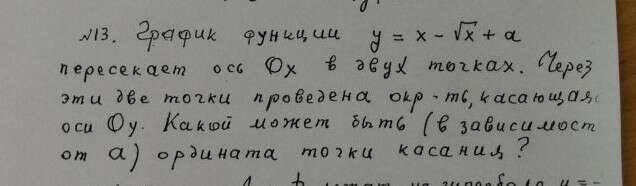 №13. График функции y = x - √x + a
пересекает ось Ox в двух точках. Через
эти две точки проведена окр-ть, касающаяс
оси Oy. Какой может быть (в зависимост
от a) ордината точки касания?